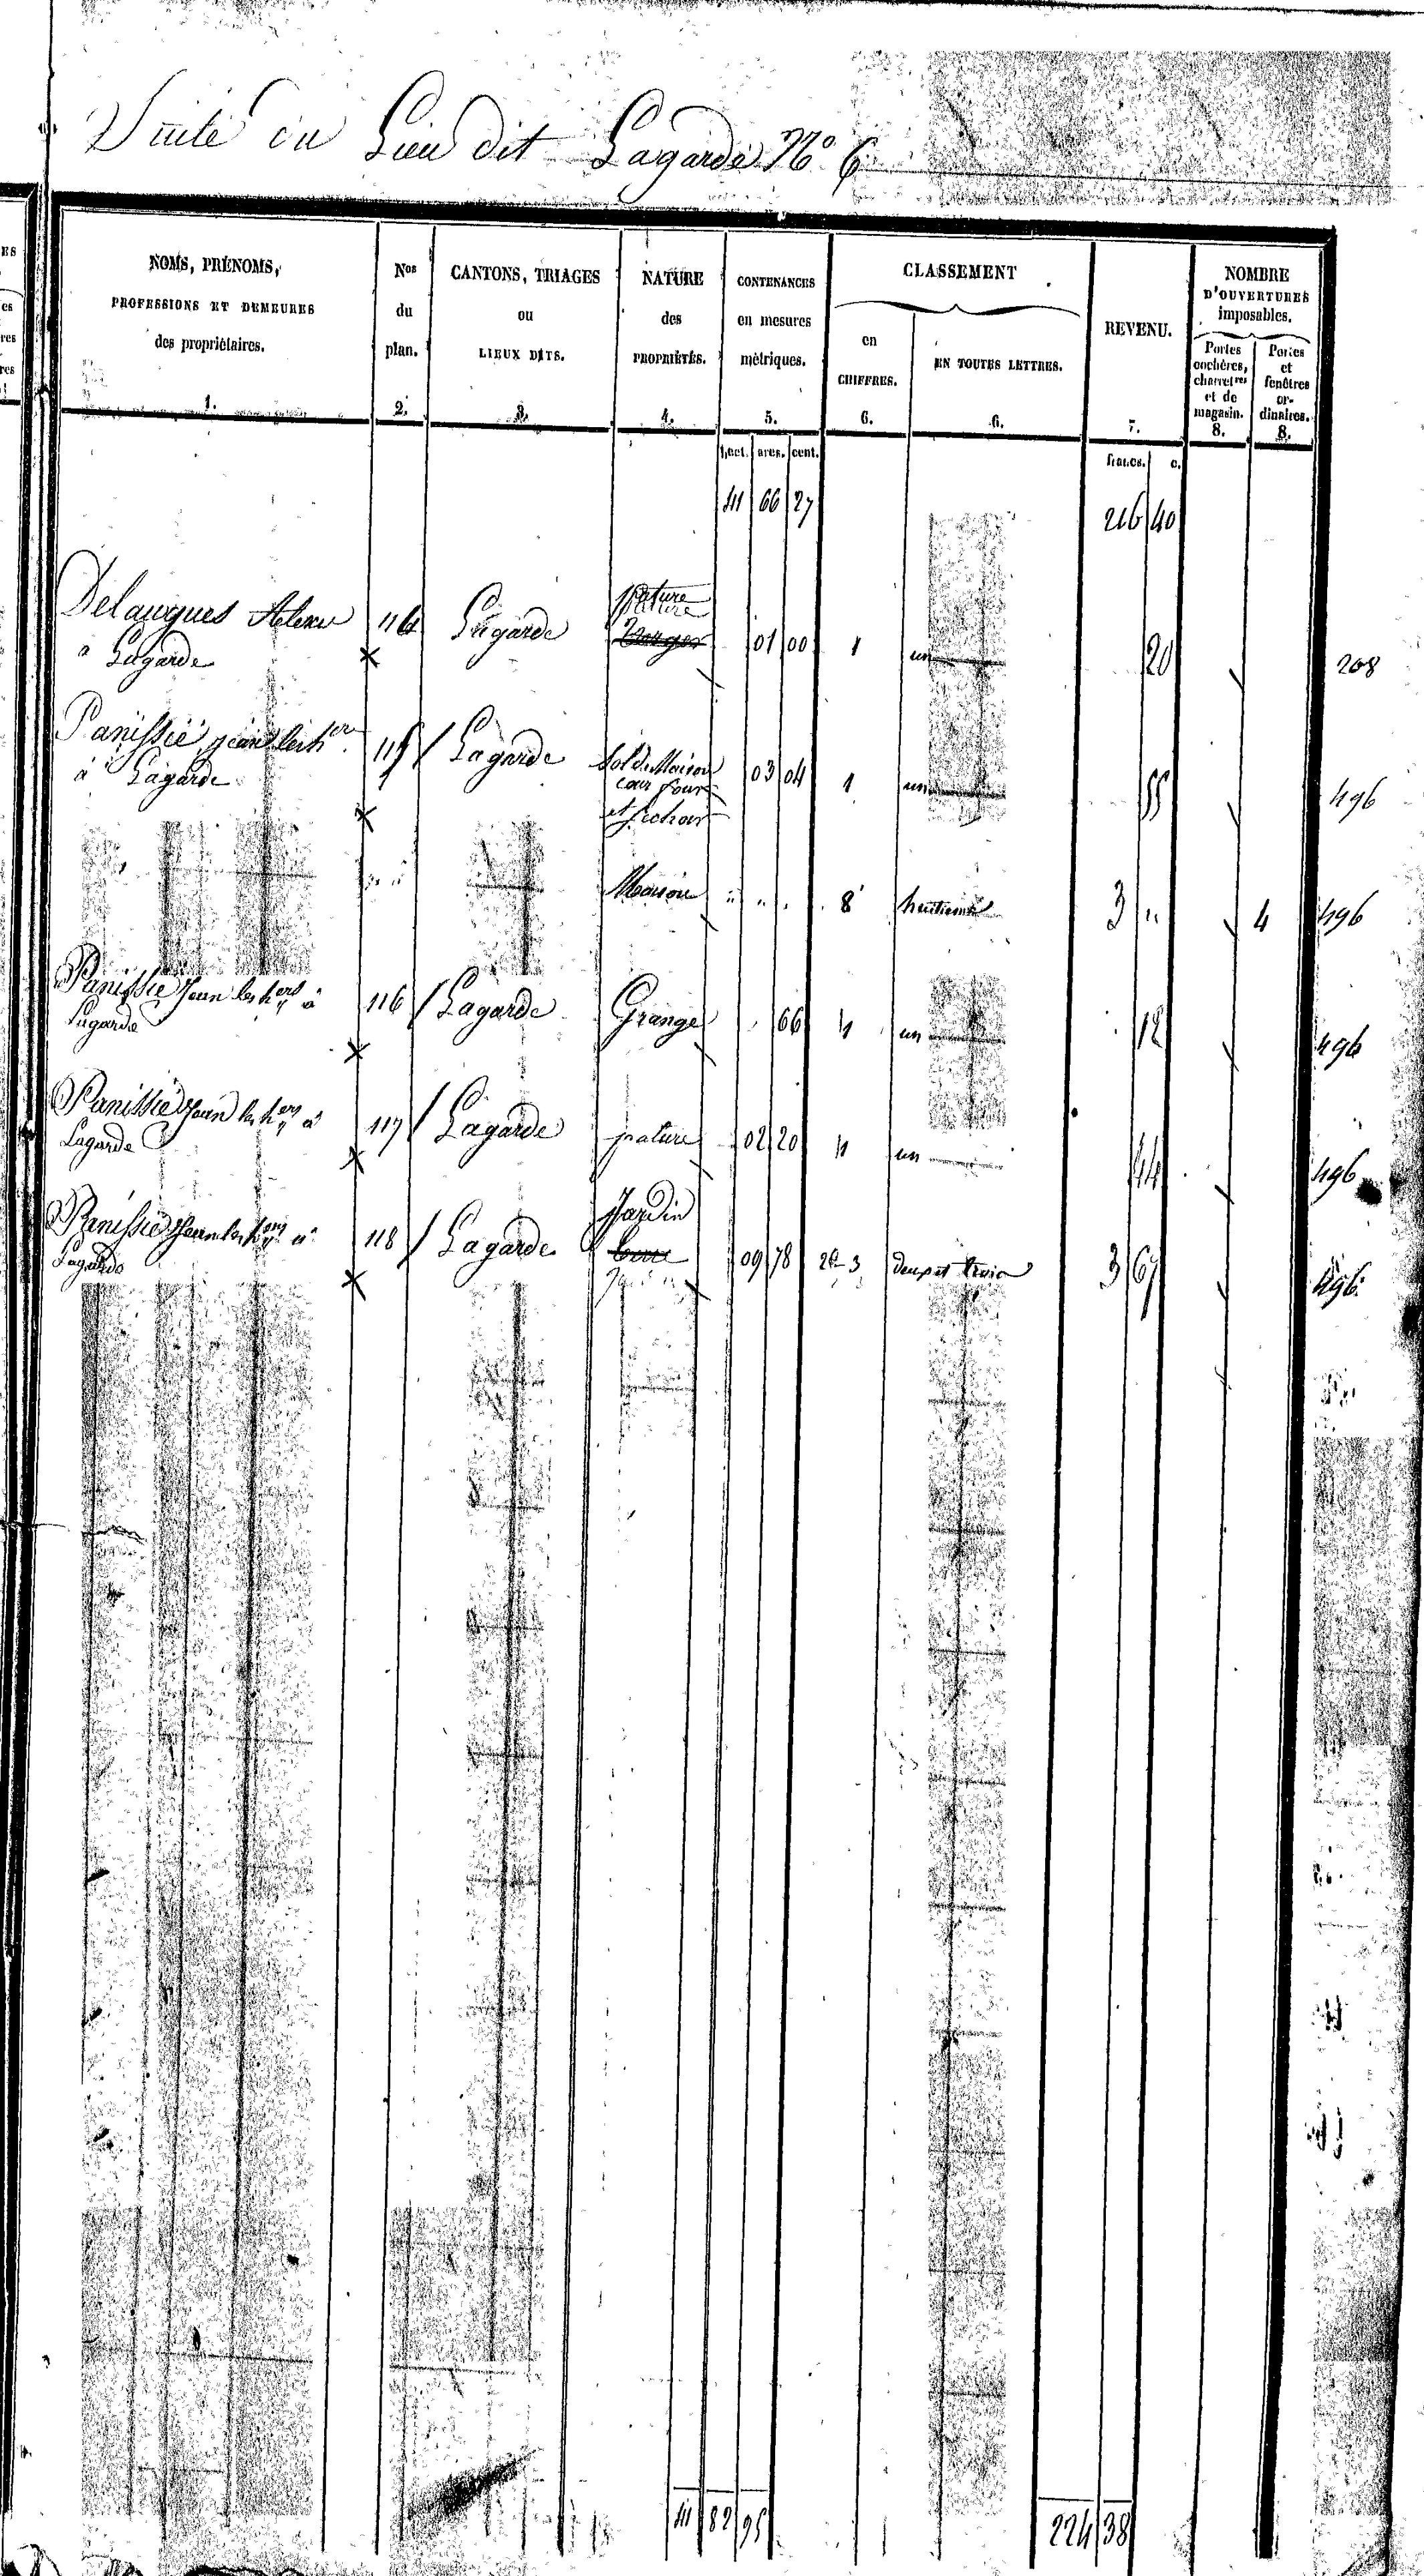 Suite du Lieu dit Lagarde N° 6
NOMS, PRÉNOMS,
PROFESSIONS ET DEMEURES
des propriétaires.
1.
Nos
du
plan.
2.
CANTONS, TRIAGES
ou
LIEUX DITS.
3.
NATURE
des
PROPRIÉTÉS.
4.
CONTENANCES
en mesures
métriques.
5.
CLASSEMENT
en
CHIFFRES.
6.
EN TOUTES LETTRES.
6.
REVENU.
7.
NOMBRE
D'OUVERTURES
imposables.
Portes
cochères,
charret res
et de
magasin.
8.
Portes
et
fenêtres
or-
dinaires.
8.
hect. ares. cent. francs. c.
41 66 27 216 40
pature
Delaugues 114 Lagarde 01 00 1 un 20 208
à Lagarde
Panissié jean les her 115 Lagarde Sol de Maison 03 04 1 un 55 496
à Lagarde cour four
et sechoir
Maison 8 huitieme 3 " 4 496
Panissié Jean les hers à 116 Lagarde Grange 66 1 un 12 496
Lagarde
Panissié Jean les hers à 117 Lagarde pature 02 20 1 un 44 496
Lagarde
Jardin
Panissié Jean les hers à 118 Lagarde terre 09 78 2 et 3 deux et trois 3 67 496
Lagarde
41 82 95 224 38